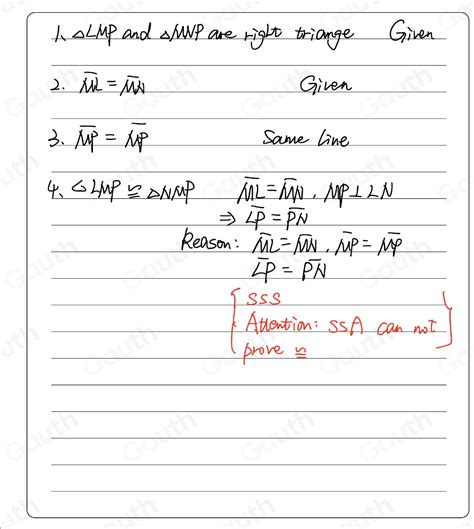 1. △LMP and △MNP are right triange Given
2. M̅L̅ = M̅N̅ Given
3. M̅P̅ = M̅P̅ Same line
4. △LMP ≌ △NMP M̅L̅ = M̅N̅, MP⊥LN
⇒ L̅P̅ = P̅N̅
Reason: M̅L̅ = M̅N̅, M̅P̅ = M̅P̅
L̅P̅ = P̅N̅
SSS
Attention: SSA can not
prove ≌